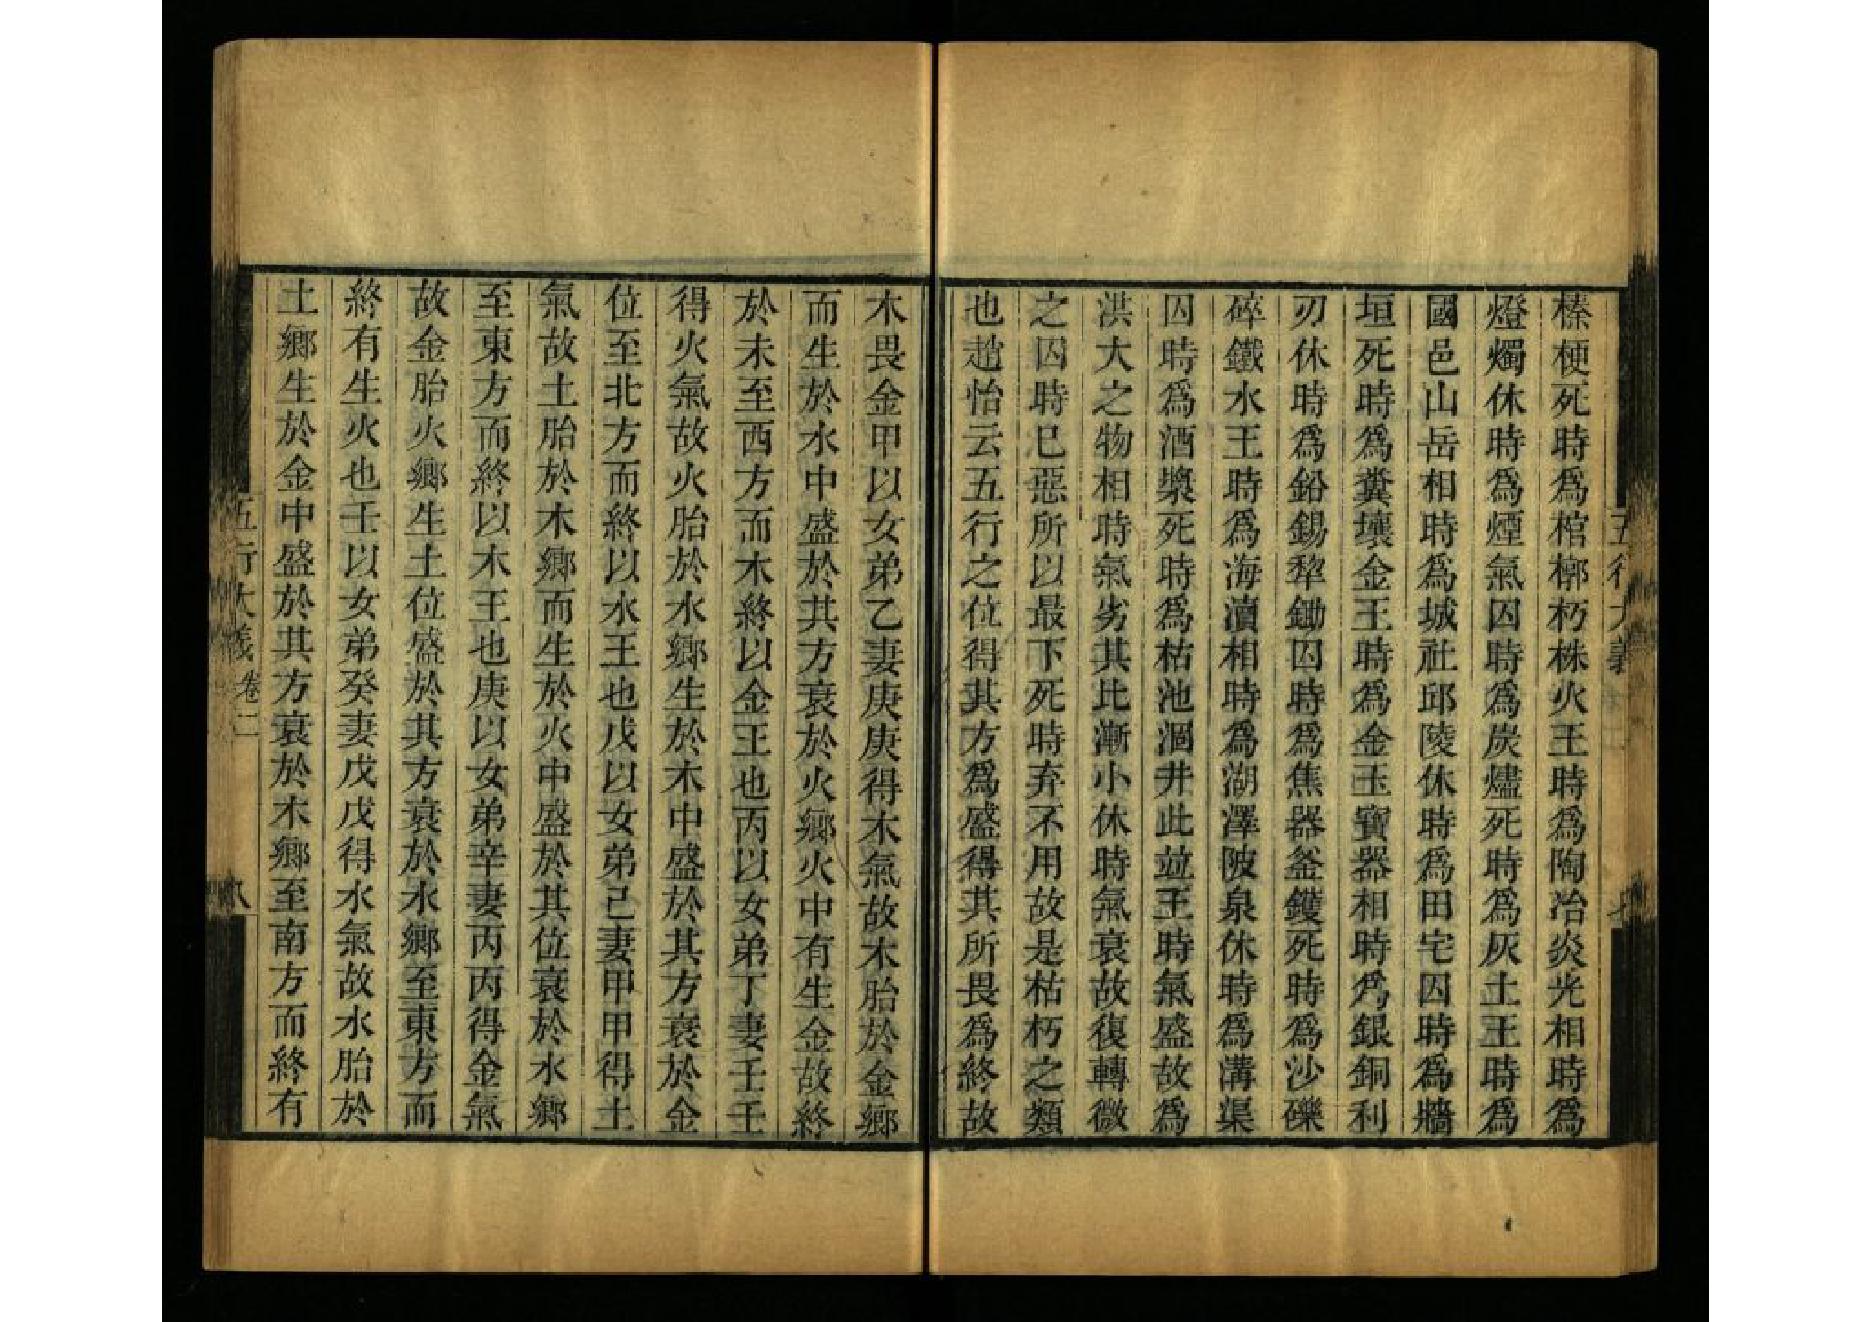 五行大義
榛梗死時爲棺槨朽株火王時爲陶冶炎光相時爲
燈燭休時爲煙氣囚時爲炭燼死時爲灰土王時爲
國邑山岳相時爲城社邱陵休時爲田宅囚時爲牆
垣死時爲糞壤金王時爲金玉寶器相時爲銀銅利
刃休時爲鉛錫犂鋤囚時爲焦器釜鑊死時爲沙礫
碎鐵水王時爲海瀆相時爲湖澤陂泉休時爲溝渠
囚時爲酒漿死時爲枯池涸井此並王時氣盛故爲
洪大之物相時氣劣其比漸小休時氣衰故復轉微
之囚時已惡所以最下死時弃不用故是枯朽之類
也趙怡云五行之位得其方爲盛得其所畏爲終故
木畏金甲以女弟乙妻庚庚得木氣故木胎於金鄉
而生於水中盛於其方衰於火鄉火中有生金故終
於未至西方而木終以金王也丙以女弟丁妻壬壬
得火氣故火胎於水鄉生於木中盛於其方衰於金
位至北方而終以水王也戊以女弟己妻甲甲得土
氣故土胎於木鄉而生於火中盛於其位衰於水鄉
至東方而終以木王也庚以女弟辛妻丙丙得金氣
故金胎火鄉生土位盛於其方衰於水鄉至東方而
終有生火也壬以女弟癸妻戊戊得水氣故水胎於
土鄉生於金中盛於其方衰於木鄉至南方而終有
五行大義 卷二 八